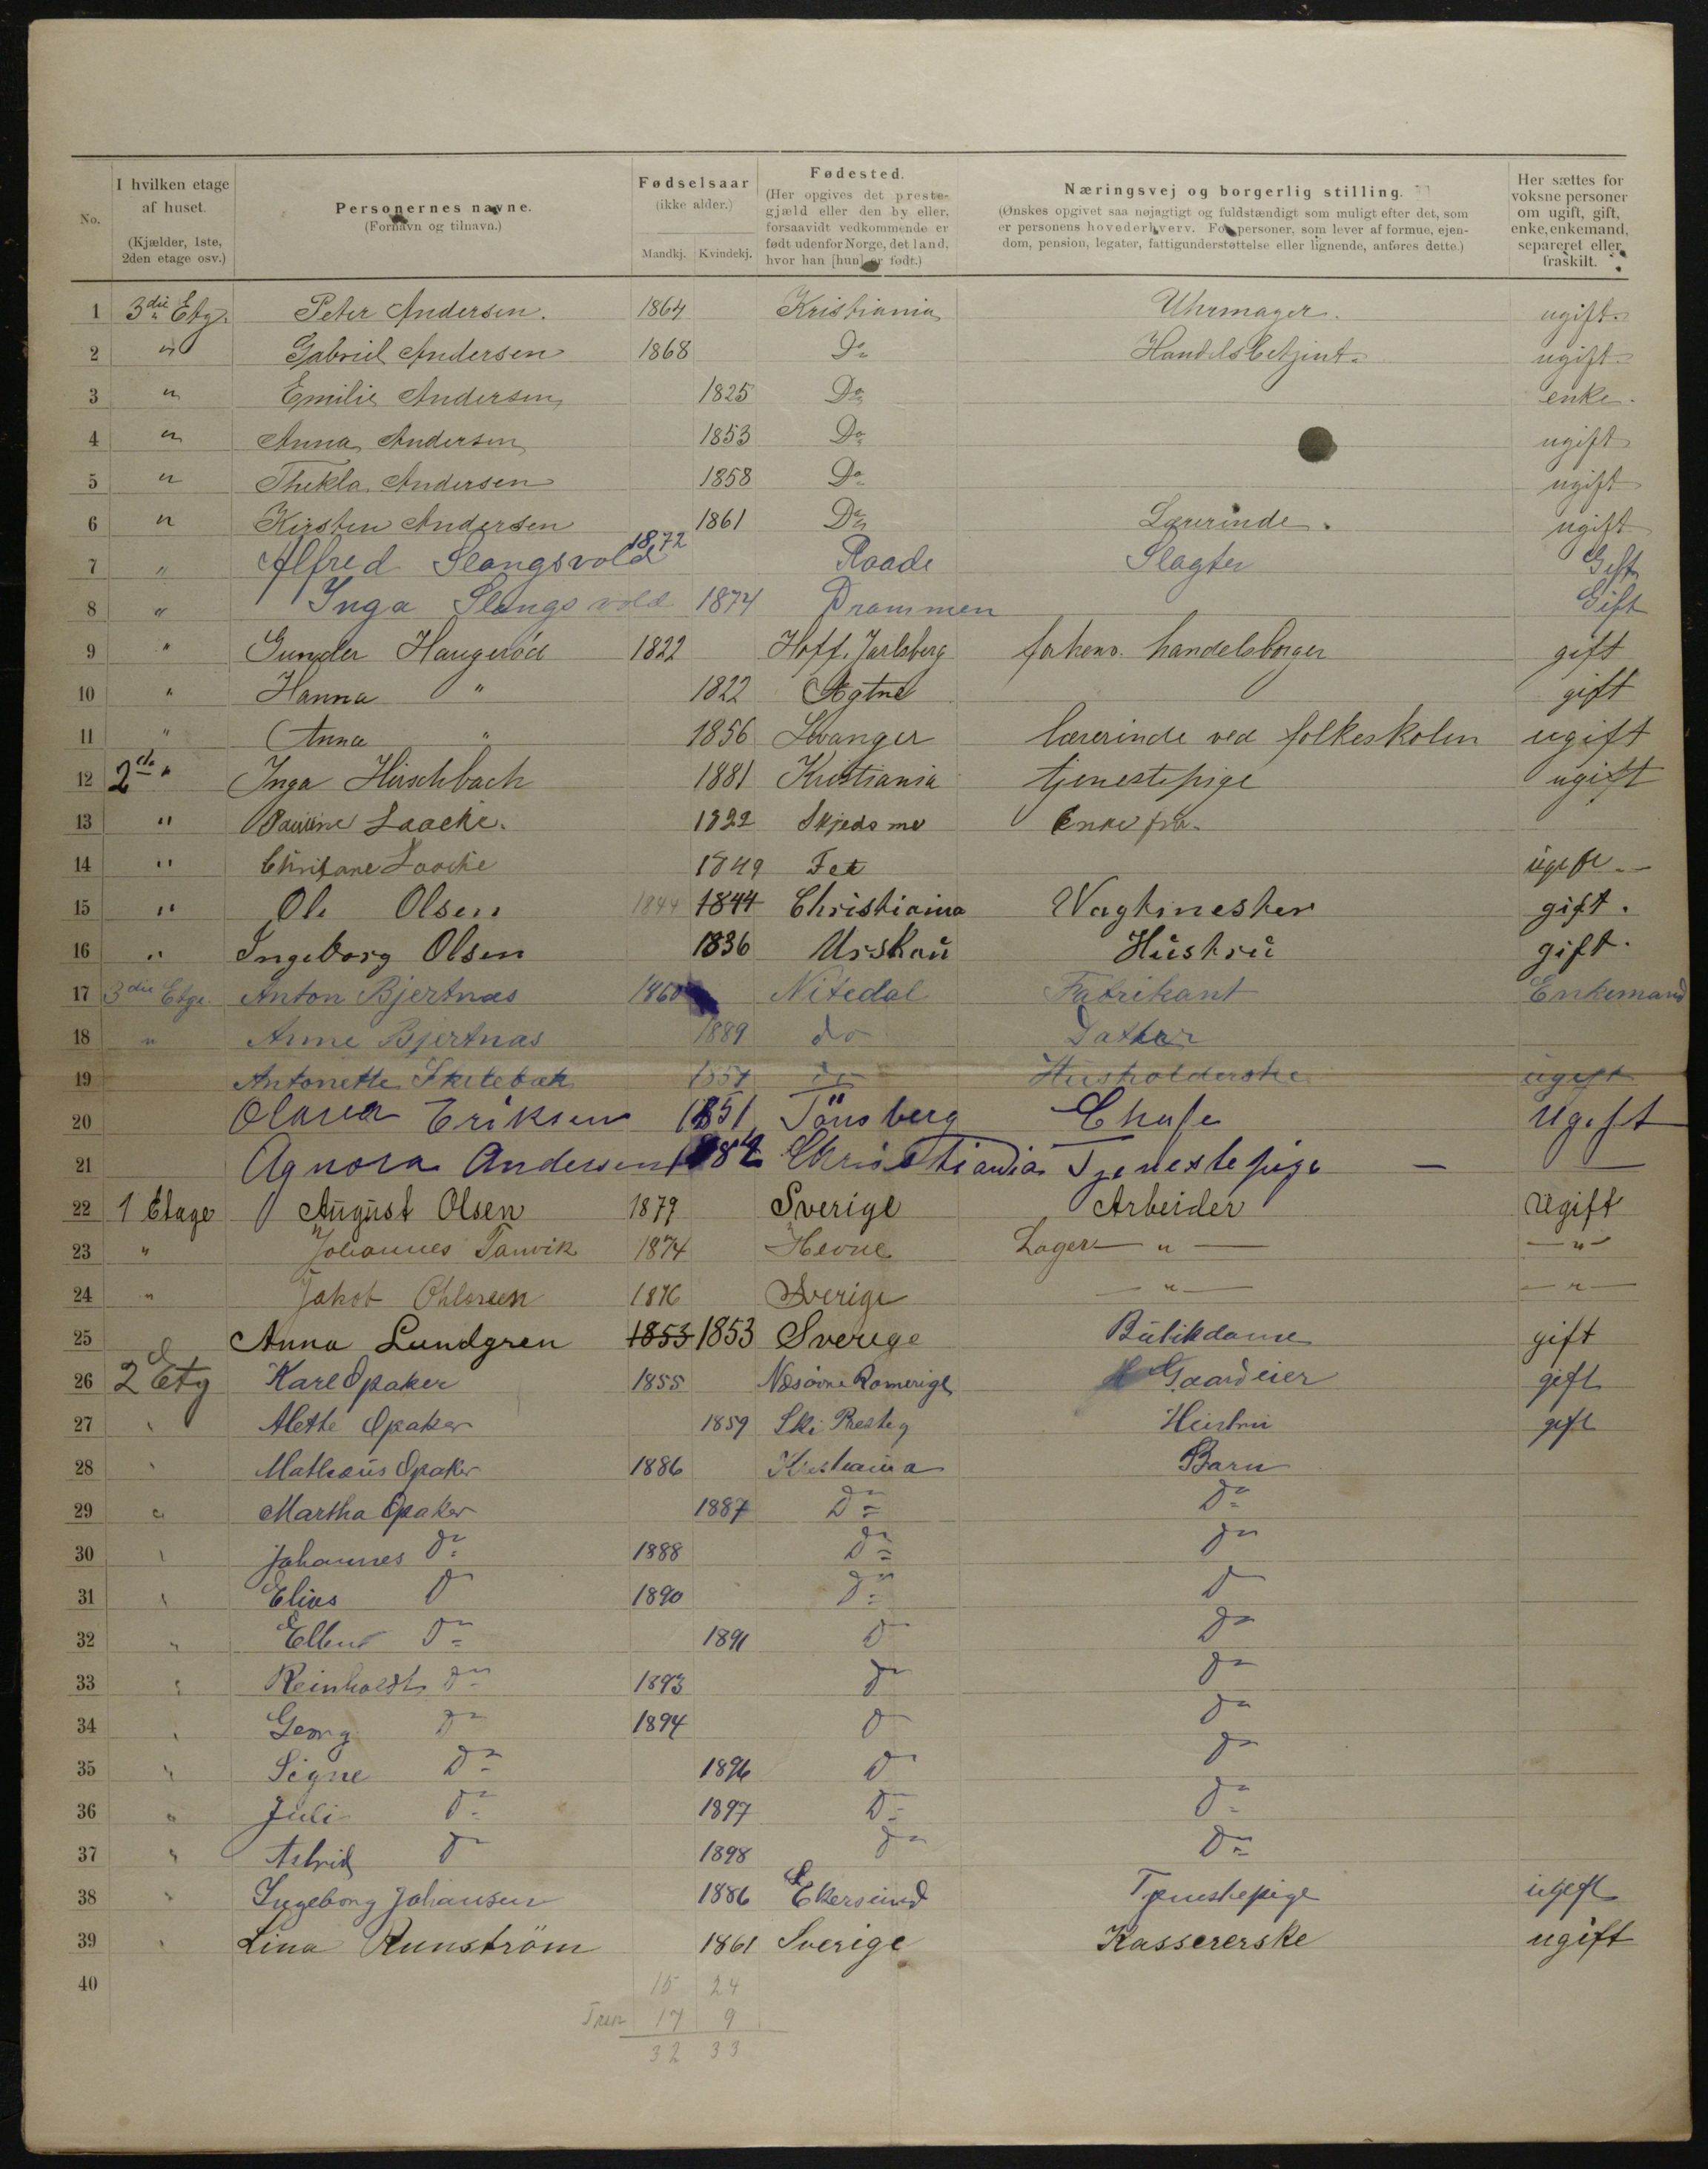 No. | I hvilken etage af huset. (Kjælder, 1ste, 2den etage osv.) | Personernes navne. (Fornavn og tilnavn.) | Fødselsaar (ikke alder.) Mandkj. Kvindekj. | Fødested. (Her opgives det prestegjæld eller den by eller, forsaavidt vedkommende er født udenfor Norge, det land, hvor han [hun] er født.) | Næringsvej og borgerlig stilling. (Ønskes opgivet saa nøjagtigt og fuldstændigt som muligt efter det, som er personens hovederhverv. For personer, som lever af formue, ejendom, pension, legater, fattigunderstøttelse eller lignende, anføres dette.) | Her sættes for voksne personer om ugift, gift, enke, enkemand, separeret eller fraskilt.
1 3die Etg. Peter Andersen. 1864 Kristiania Uhrmager. ugift.
2 " Gabriel Andersen 1868 Do Handelsbetjent. ugift.
3 " Emilie Andersen 1825 Do enke.
4 " Anna Andersen 1853 Do ugift
5 " Thekla Andersen 1858 Do ugift
6 " Kirsten Andersen 1861 Do Lærerinde. ugift
7 " Alfred Slangsvold 1872 Raade Slagter Gift
8 " Inga Slangsvold 1874 Drammen Gift
9 " Gunder Haugerød 1822 Hoff. Jarlsberg forhenv. handelsborger gift
10 " Hanna " 1822 gift
11 " Anna " 1856 Levanger lærerinde ved folkeskolen ugift
12 2den " Inga Hirschbach 1881 Kristiania tjenestepige ugift
13 " Pauline Laache. 1822 Skjedsmo Enkefru.
14 " Laache 1849 Fet ugift
15 " Ole Olsen 1844 1844 Christiania Vagtmester gift.
16 " Ingeborg Olsen 1836 Urskau Hustru gift.
17 3die Etge. Anton Bjertnæs 1860 Nitedal Fabrikant Enkemand
18 " Anne Bjertnæs 1889 do Datter
19 Antonette 1857 do Husholderske ugift
20 Olava Eriksen 1851 Tönsberg Ugift
21 Agnora Andersen Christiania Tjenestepige — —
22 1 Etage August Olsen 1879 Sverige Arbeider Ugift
23 " Johannes Tanvik 1874 Hevne Lager — " — — " —
24 " Jakob Ohlsson 1876 Sverige — " — — " —
25 Anna Lundgren 1853 1853 Sverige Butikdame gift
26 2d Etg Karl Opaker 1855 Næs øvre Romerige Gaardeier gift
27 " Alette Opaker 1859 Ski Presteg Hustru gift
28 " Mathæus Opaker 1886 Kristiania Barn
29 " Martha Opaker 1887 Do Do
30 " Johannes Do 1888 Do Do
31 " Elias Do 1890 Do Do
32 " Ellen Do 1891 Do Do
33 " Reinholdt Do 1893 Do Do
34 " Georg Do 1894 Do Do
35 " Signe Do 1896 Do Do
36 " Juli Do 1897 Do Do
37 " Astrid Do 1898 Do Do
38 " Ingeborg Johansen 1886 Ekersund Tjenestepige ugift
39 " Lina Runström 1861 Sverige Kassererske ugift
40 15 24
17 9
32 33